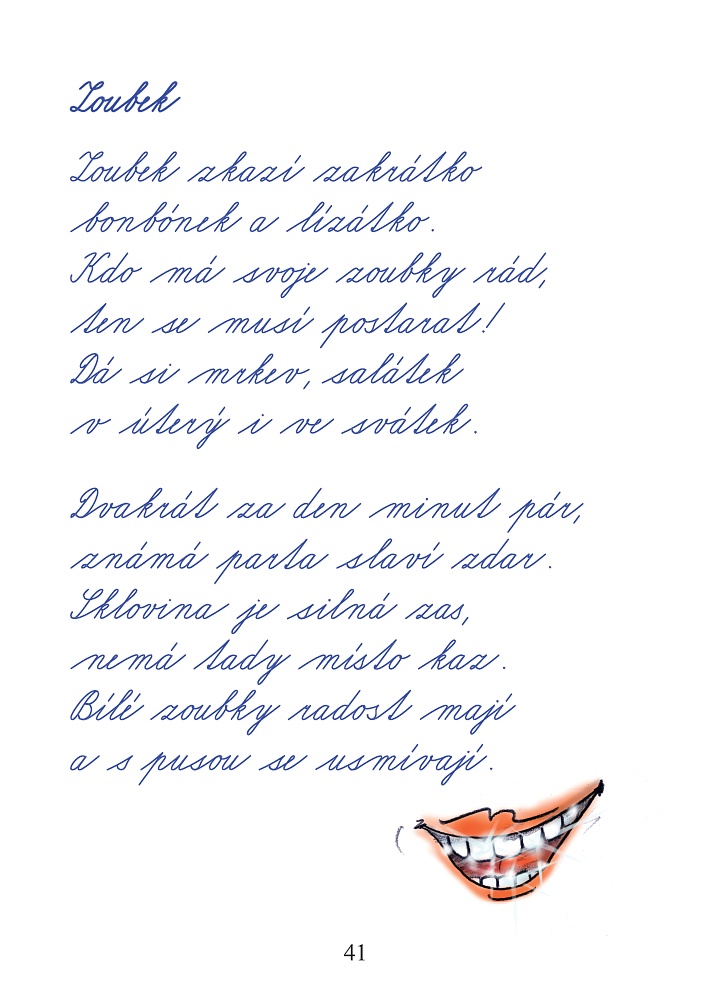 Zoubek
Zoubek zkazí zakrátko
bonbónek a lízátko.
Kdo má svoje zoubky rád,
ten se musí postarat!
Dá si mrkev, salátek
v úterý i ve svátek.
Dvakrát za den minut pár,
známá parta slaví zdar.
Sklovina je silná zas,
nemá tady místo kaz.
Bílé zoubky radost mají
a s pusou se usmívají.
41